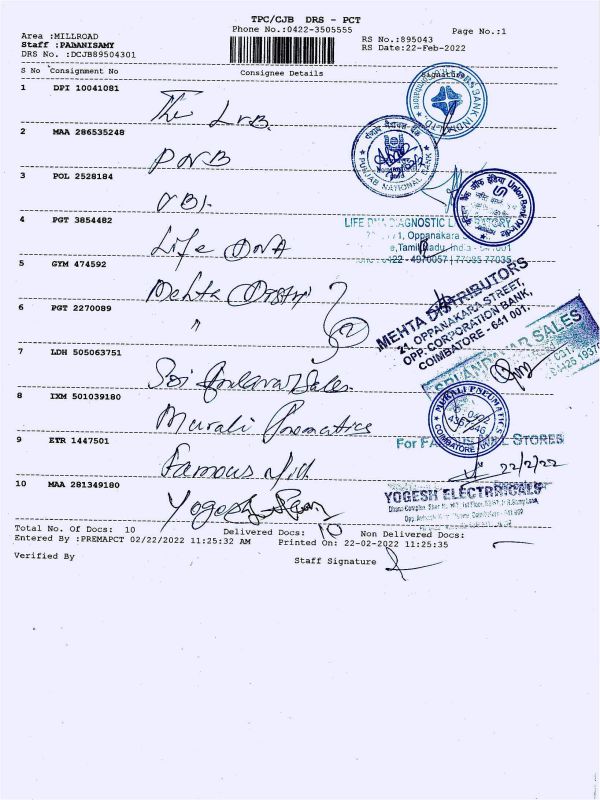 TPC/CJB DRS - PCT
Phone No.:0422-3505555
Page No.:1
Area :MILLROAD
RS No.:895043
Staff :PADANISAMY
RS Date:22-Feb-2022
DRS No. :DCJB89504301
S No Consignment No Consignee Details Signature
1 DPI 10041081
The LVB.
2 MAA 286535248
PNB
PUNJAB NATIONAL BANK
3 POL 2528184
UBI.
Union Bank Of India
4 PGT 3854482
Life DNA
LIFE DNA DIAGNOSTIC LABORATORY
Oppanakara
Tamil Nadu, India - 641001
0422 - 4970057 | 77085 77035
5 GYM 474592
Mehta
MEHTA DISTRIBUTORS
21, OPPANAKARA STREET,
OPP. CORPORATION BANK,
COIMBATORE - 641 001.
6 PGT 2270089
"
(2)
7 LDH 505063751
Sales
SALES
8 IXM 501039180
Murali Pneumatics
MURALI PNEUMATICS
COIMBATORE
9 ETR 1447501
Famous Mill
For FAMOUS MILL STORES
22/2/22
10 MAA 281349180
Yogesh
YOGESH ELECTRICALS
Total No. Of Docs: 10 Delivered Docs: 10 Non Delivered Docs:
Entered By :PREMAPCT 02/22/2022 11:25:32 AM Printed On: 22-02-2022 11:25:35
Verified By
Staff Signature